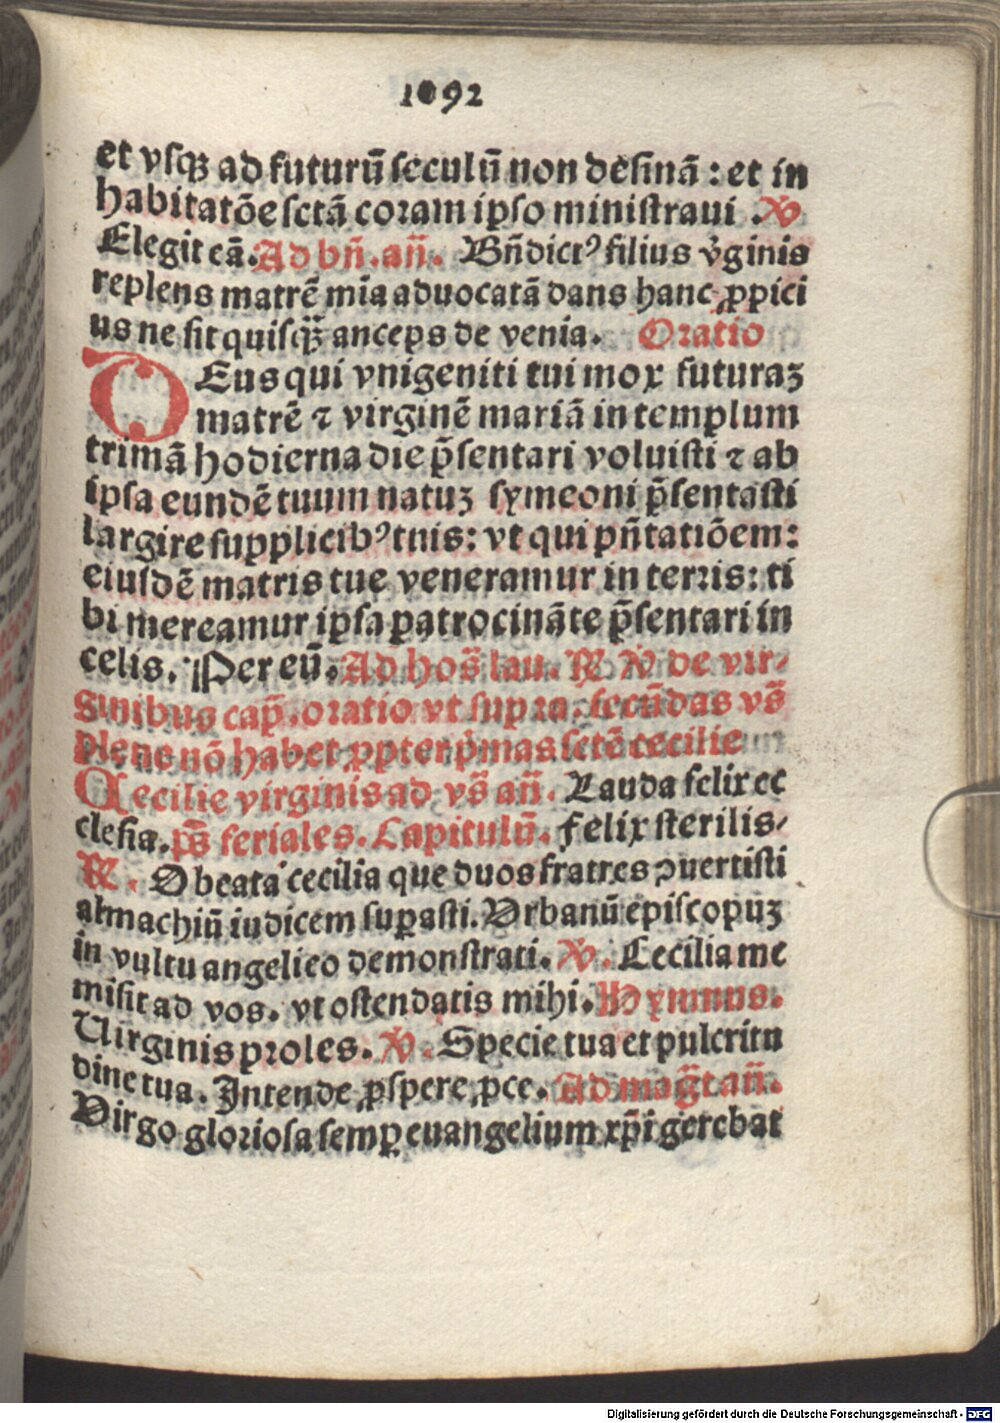 1092
et vsqꝫ ad futurū seculū non desinā : et in
habitatōe sctā coram ipso ministraui . ℣
Elegit eā. Ad bn̄. an̄. Bn̄dictꝰ filius v̓ginis
replens matrē mia aduocatā dans hanc ꝓpici
us ne sit quisqꝫ̄ anceps de venia. Oratio
DEus qui vnigeniti tui mox futuraꝫ
matrē ⁊ virginē mariā in templum
trimā hodierna die p̄sentari voluisti ⁊ ab
ipsa eundē tuum natuꝫ symeoni p̄sentasti
largire supplicibꝰ tuis: vt qui pn̄tatiōem:
eiusdē matris tuę veneramur in terris: ti
bi mereamur ipsa patrocināte p̄sentari in
celis. Per eū. Ad hos̄ lau. ℟ ℣ de vir⸗
ginibus cap̄. oratio vt supra. secūdas vs̄
plene nō habet ꝓpter p̓mas sctē cecilie
Cecilie virginis ad vs̄ an̄. Lauda felix ec
clesia. ps̄ feriales. Capitulū. Felix sterilis⸗
℟. O beata cecilia que duos fratres ↄuertisti
almachiū iudicem suꝑasti. Vrbanū episcopuꝫ
in vultu angelico demonstrati. ℣. Cecilia me
misit ad vos. vt ostendatis mihi. Hymnus.
Virginis proles. ℣. Specie tua et pulcritu
dine tua. Intende ꝓspere ꝓce. Ad mag̅t an̄.
Virgo gloriosa semꝑ euangelium xp̄i gerebat
Digitalisierung gefördert durch die Deutsche Forschungsgemeinschaft - DFG